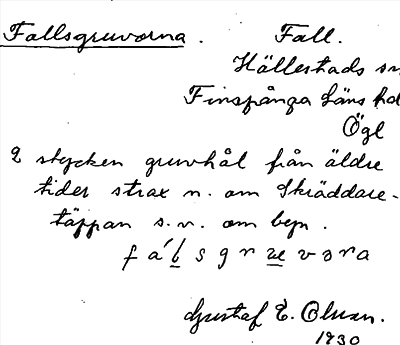 Fallsgruvorna. Fall.
Hällestads sn
Finspånga läns hd
Ögl
2 stycken gruvhål från äldre
tider strax n. om Skräddare-
täppan s.v. om bepn.
Gustaf E. Olsson.
1930